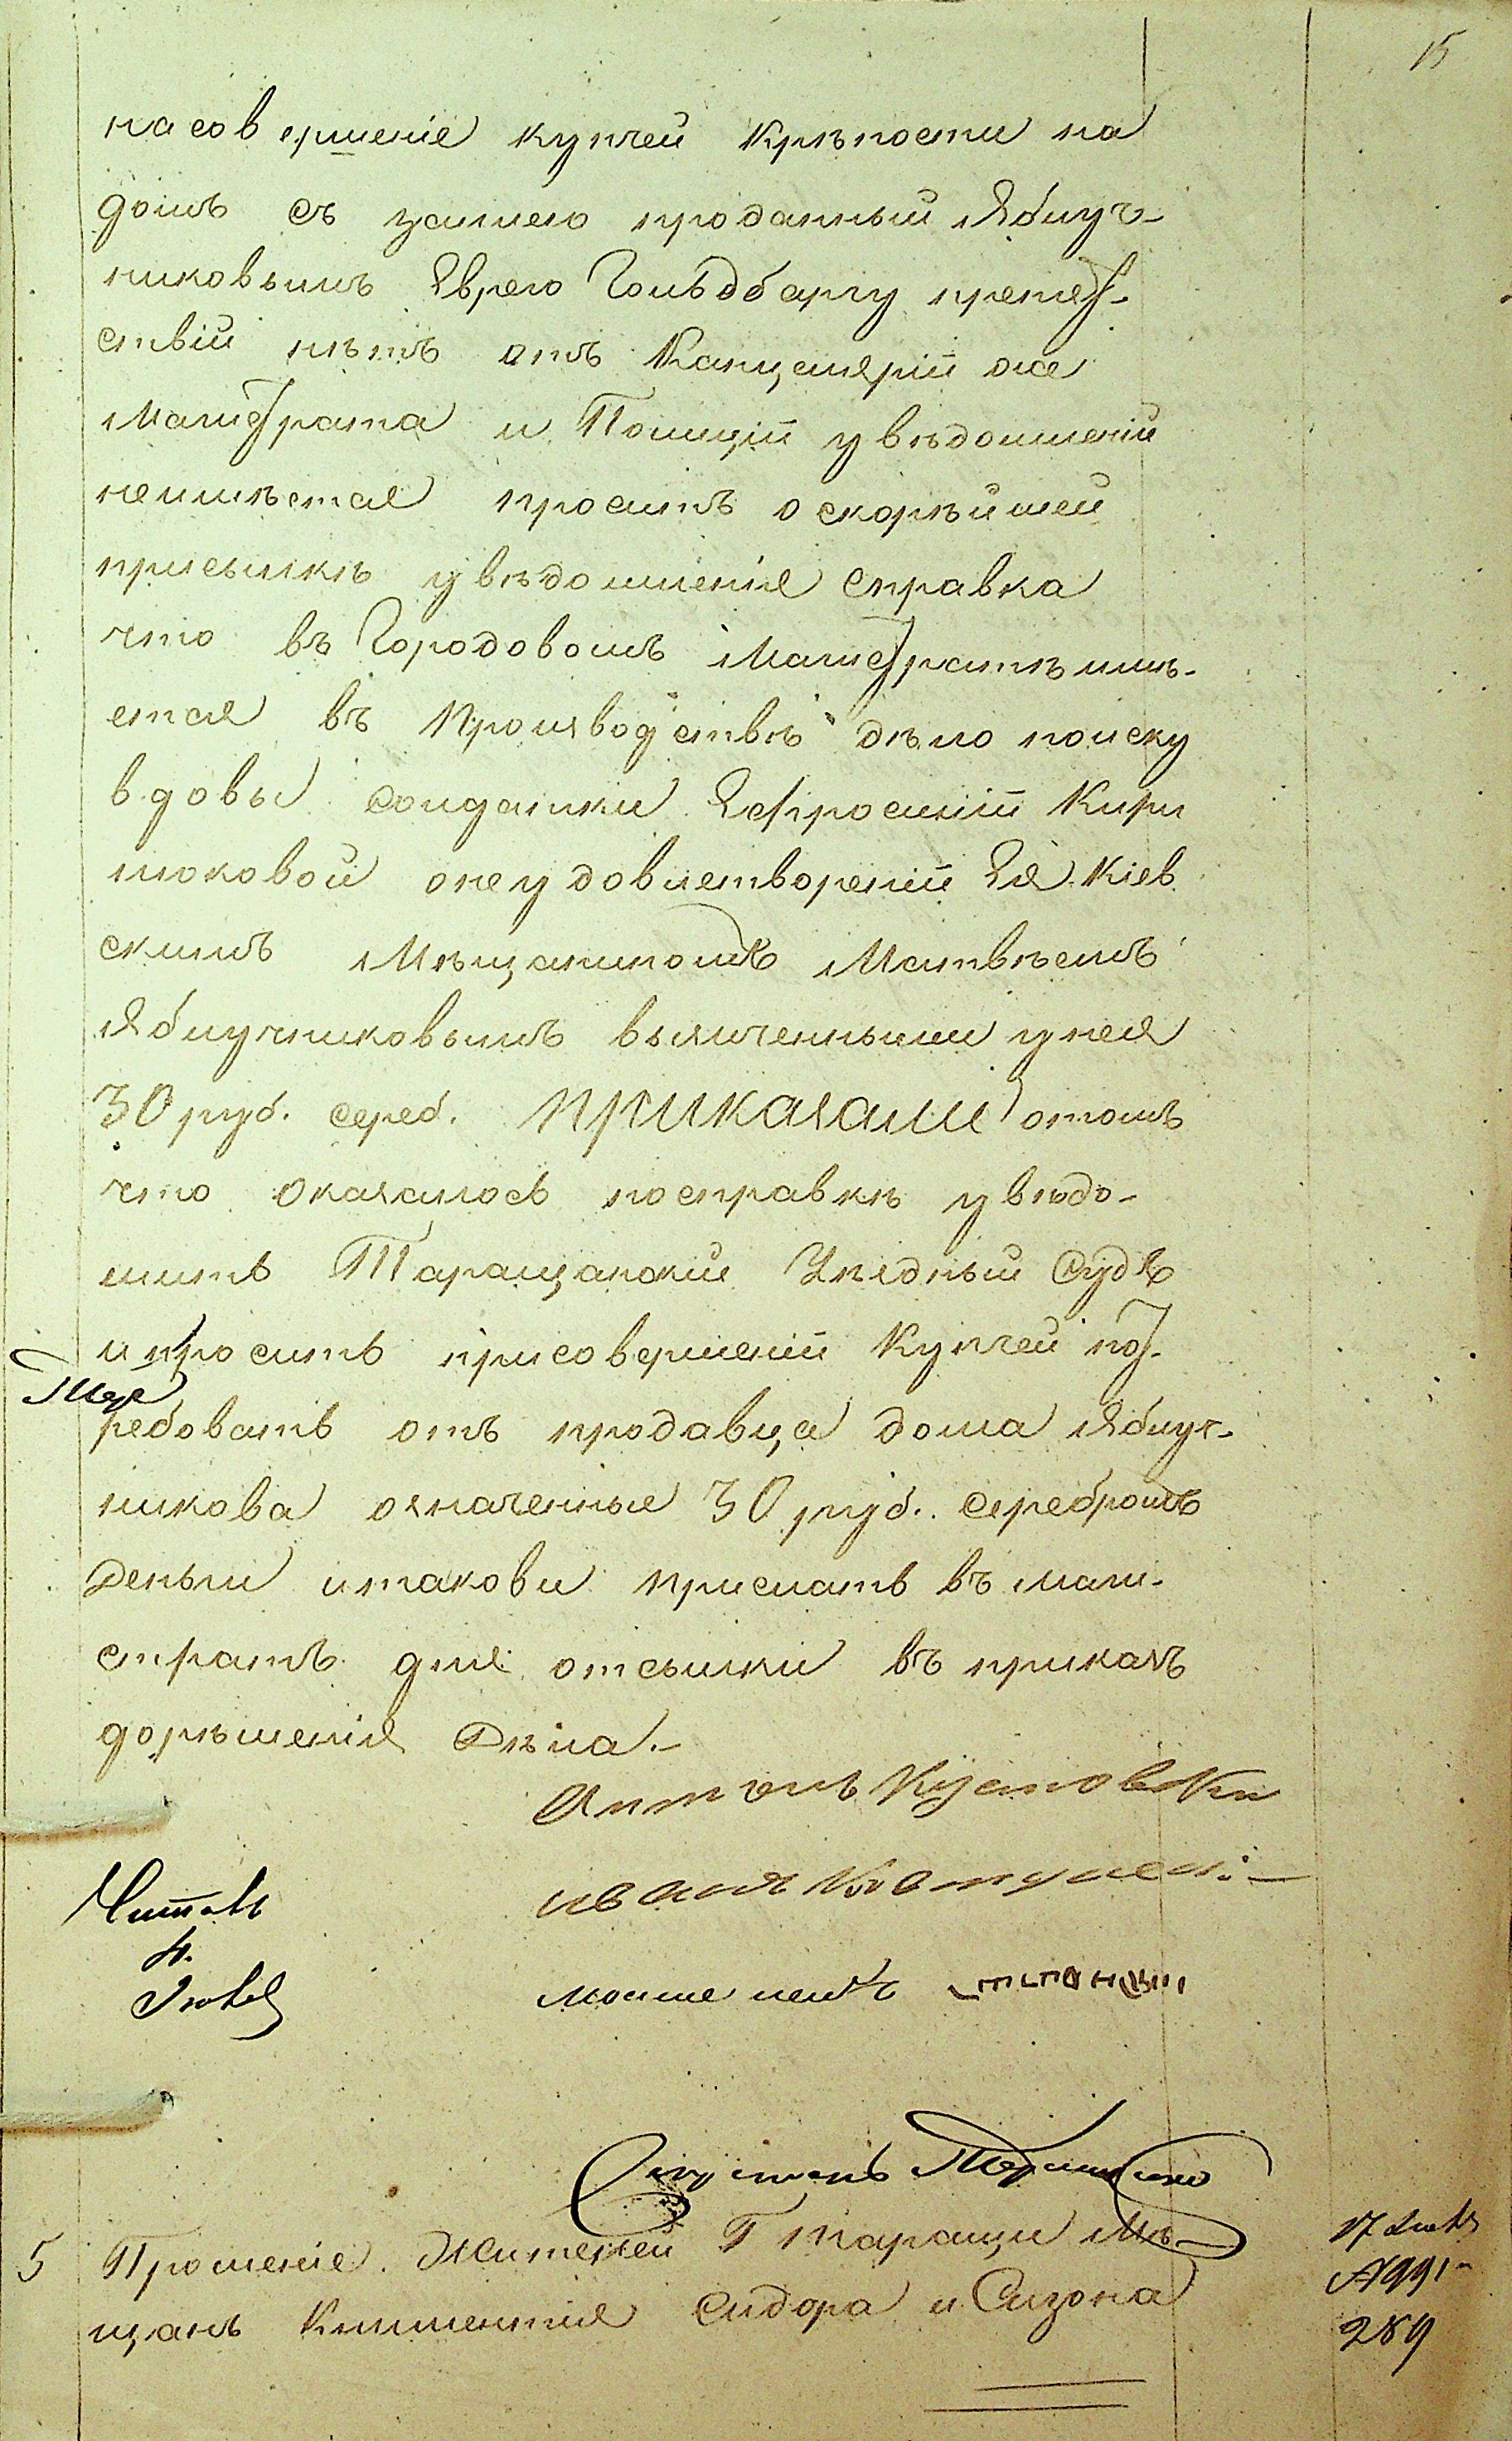 15
на совершеніе купчей крѣпости на
домъ съ землею проданный Яблуч-
никовымъ Еврею Гольдбаргу препят-
ствій нѣтъ отъ Канцелярій же
Магистрата и Полиціи увѣдомленій
неимѣется проситъ о скорѣйшей
присылкѣ увѣдомленія Справка
что въ Городовомъ Магистратѣ имѣ-
ется въ производствѣ дѣло поиску
вдовы солдатки Ефросиніи Кири
люковой онеудовлетвореніи Ея Кіев
скимъ Мѣщаниномъ Матвѣемъ
Яблучниковымъ взятыми унея
30 руб. сереб. приказали отомъ
что оказалось посправкѣ увѣдо-
мить Таращанскій Уѣздный Судъ
ипросить присовершеніи Купчей пот-
ребовать отъ продавца дома Яблуч-
никова означенные 30 руб. серебромъ
Деньги итакови прислать въ маги-
стратъ для отсылки въ приказъ
дорѣшенія Дѣла.-
Антонъ Кустовски
иванъ
Читалъ
мошне
Секретарь
5 Прошеніе Жителей Г Таращи Мѣ-
щанъ Климентія Сидора и Сизона
17
№991
289